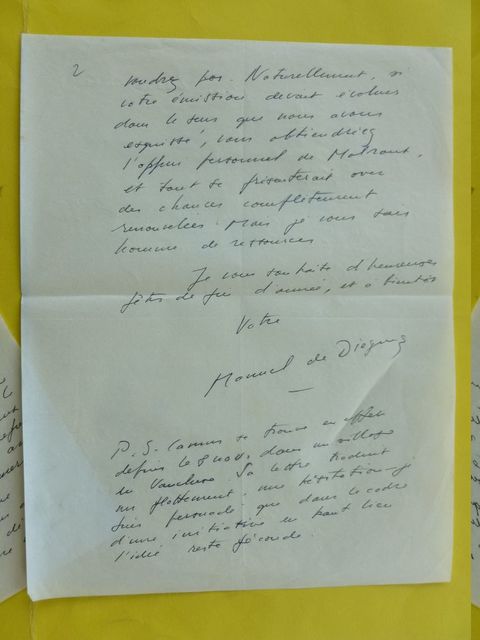 2
voudrez pas. Naturellement, si
votre émission devait évoluer
dans le sens que nous avons
esquissé, vous obtiendriez
l'appui personnel de Malraux,
et tout se présenterait avec
des chances complètement
renouvelées. Mais je vous sais
homme de ressources
Je vous souhaite d'heureuses
fêtes de fin d'année, et à bientôt
Votre
Manuel de Dieguez
P.S. Camus se trouve en effet
depuis le 8 nov. dans un village
du Vaucluse. Sa lettre traduit
un flottement, une hésitation - je
suis persuadé que dans le cadre
d'une initiative en haut lieu
l'idée reste féconde.